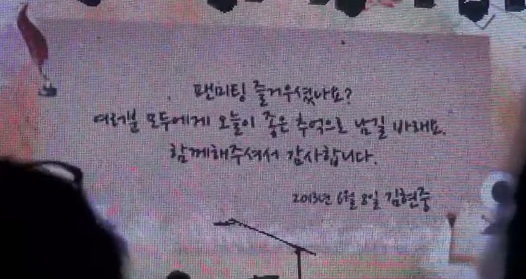 팬미팅 즐거우셨나요?
여러분 모두에게 오늘이 좋은 추억으로 남길 바래요.
함께해주셔서 감사합니다.
2013년 6월 8일 김현중